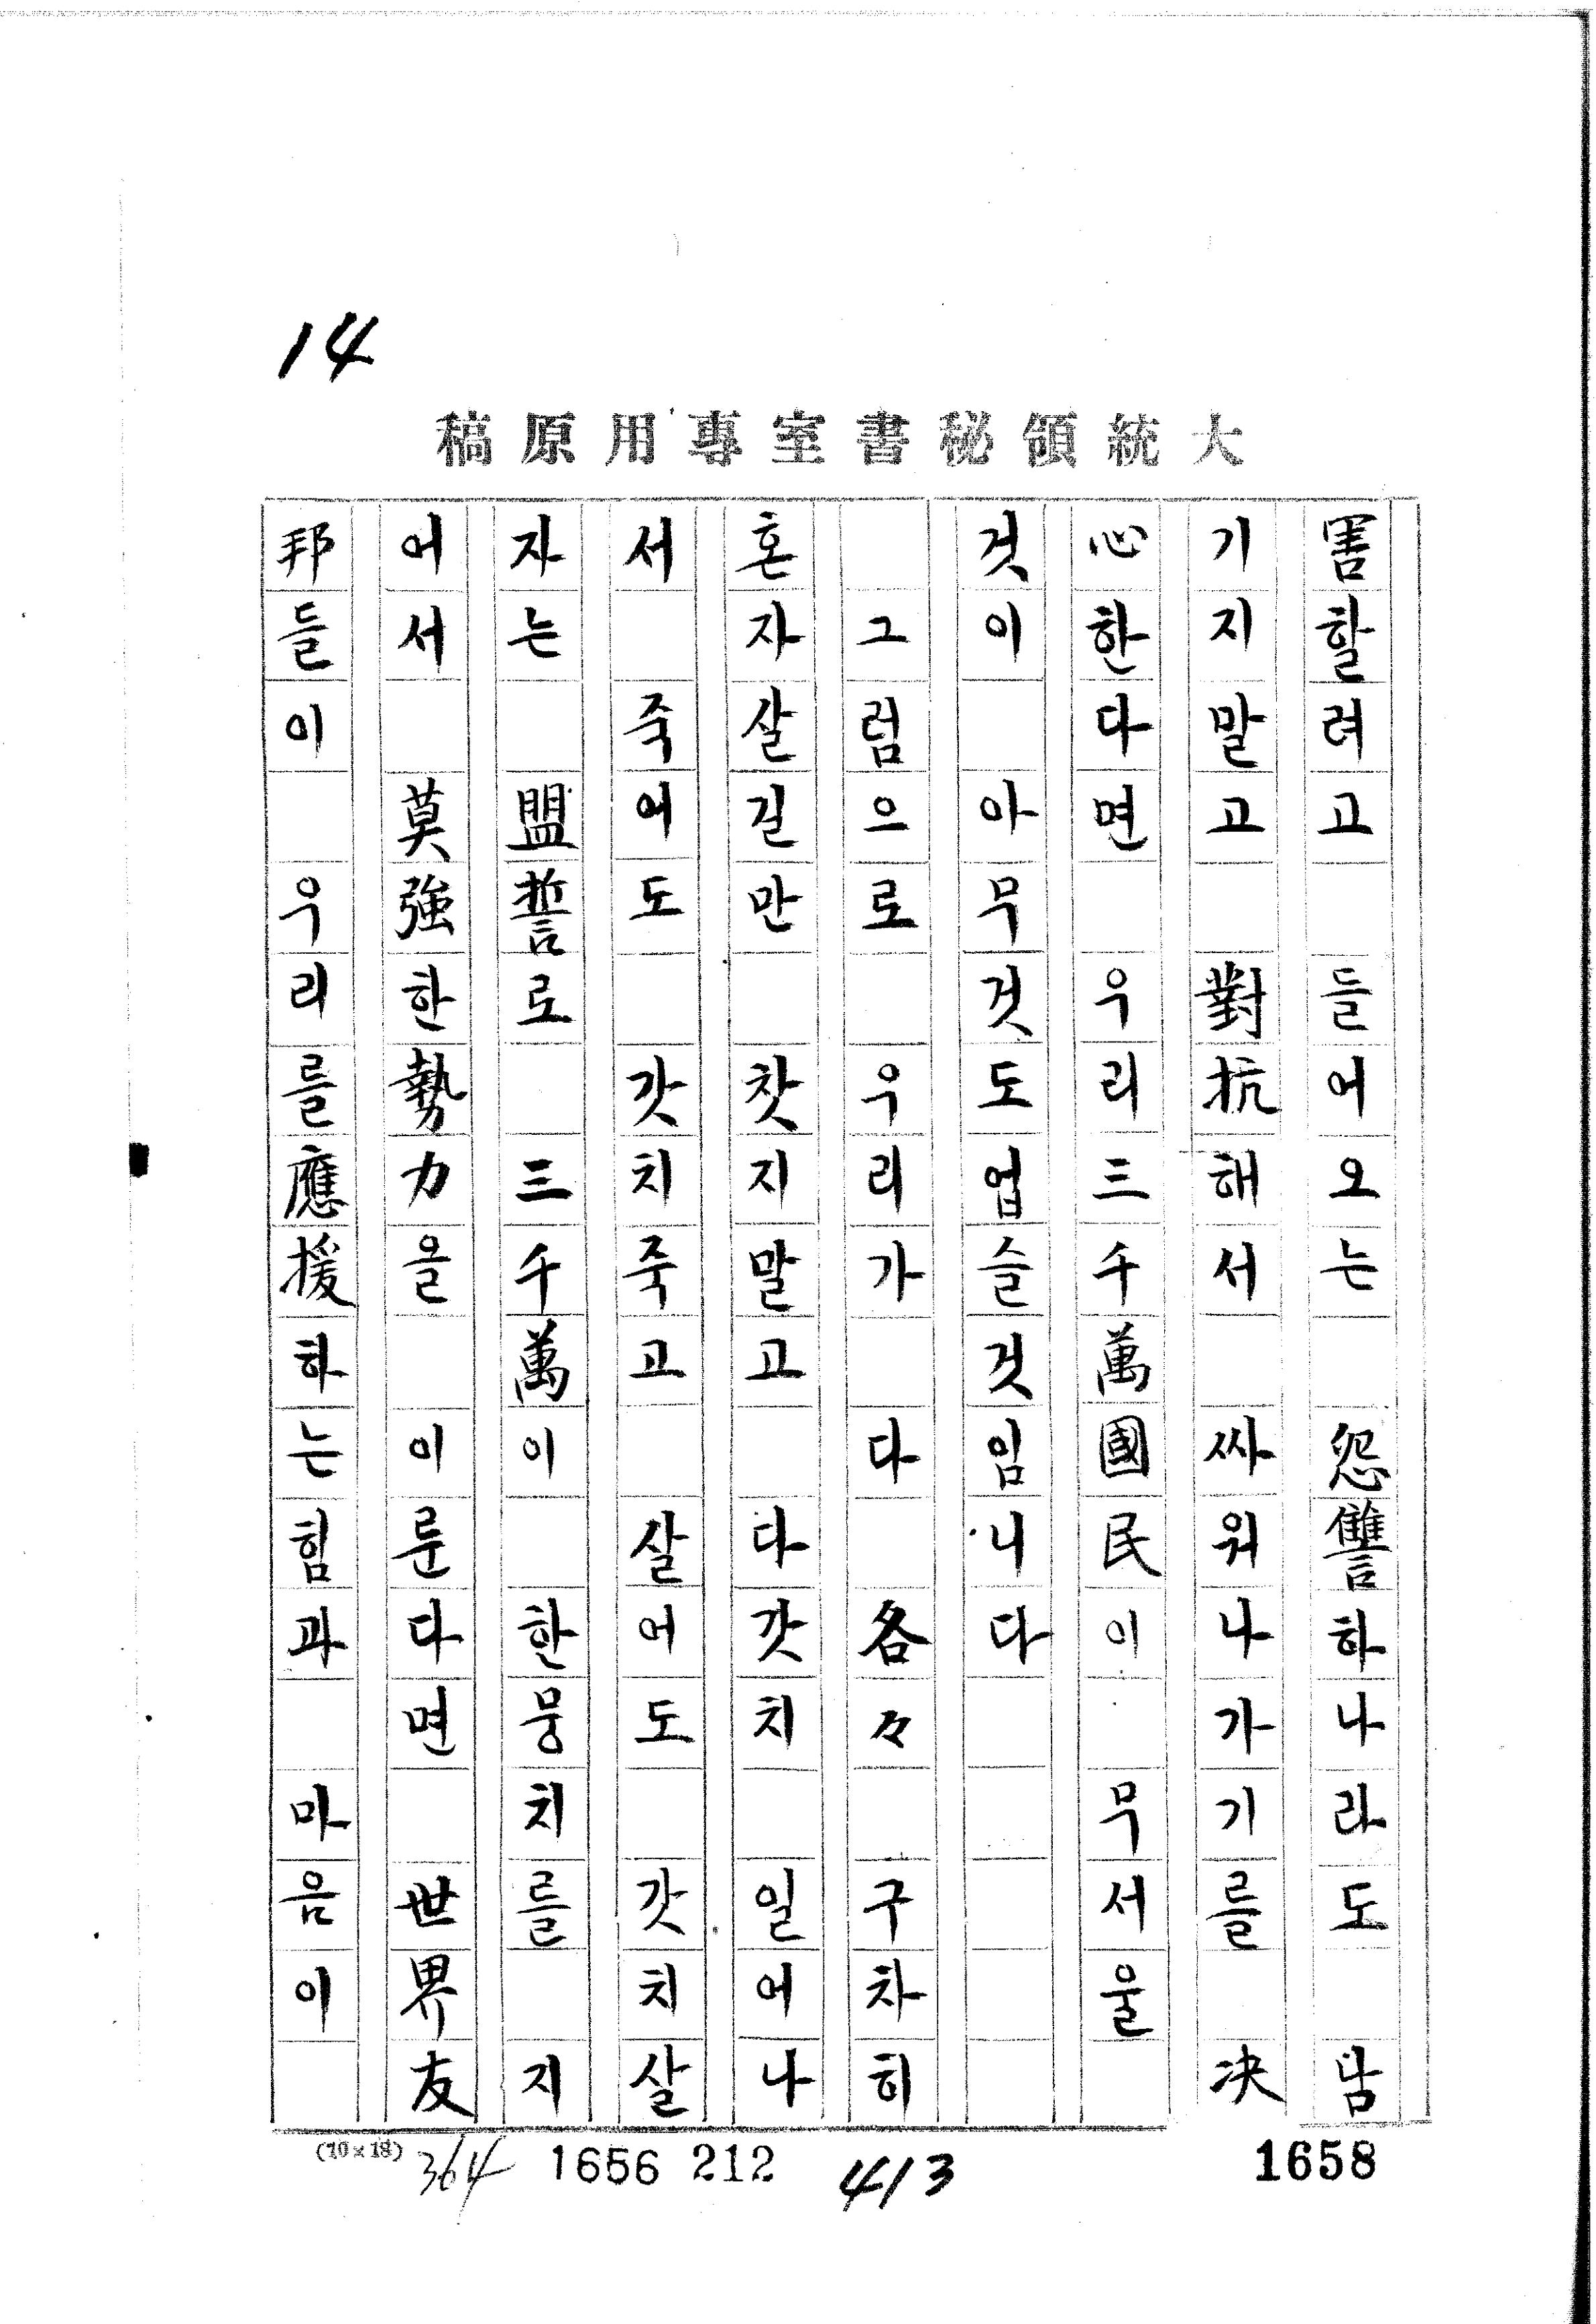 14
大統領秘書室專用原稿
害할려고 들어오는 怨讐하나라도 남
기지말고 對抗해서 싸워나가기를 決
心한다면 우리三千萬國民이 무서울
것이 아무것도업슬것임니다
그럼으로 우리가 다 各々 구차히
혼자살길만 찻지말고 다갓치 일어나
서 죽어도 갓치죽고 살어도 갓치살
자는 盟誓로 三千萬이 한뭉치를 지
어서 莫強한勢力을 이룬다면 世界友
邦들이 우리를應援하는힘과 마음이
(10×18) 364 1656 212 413 1658